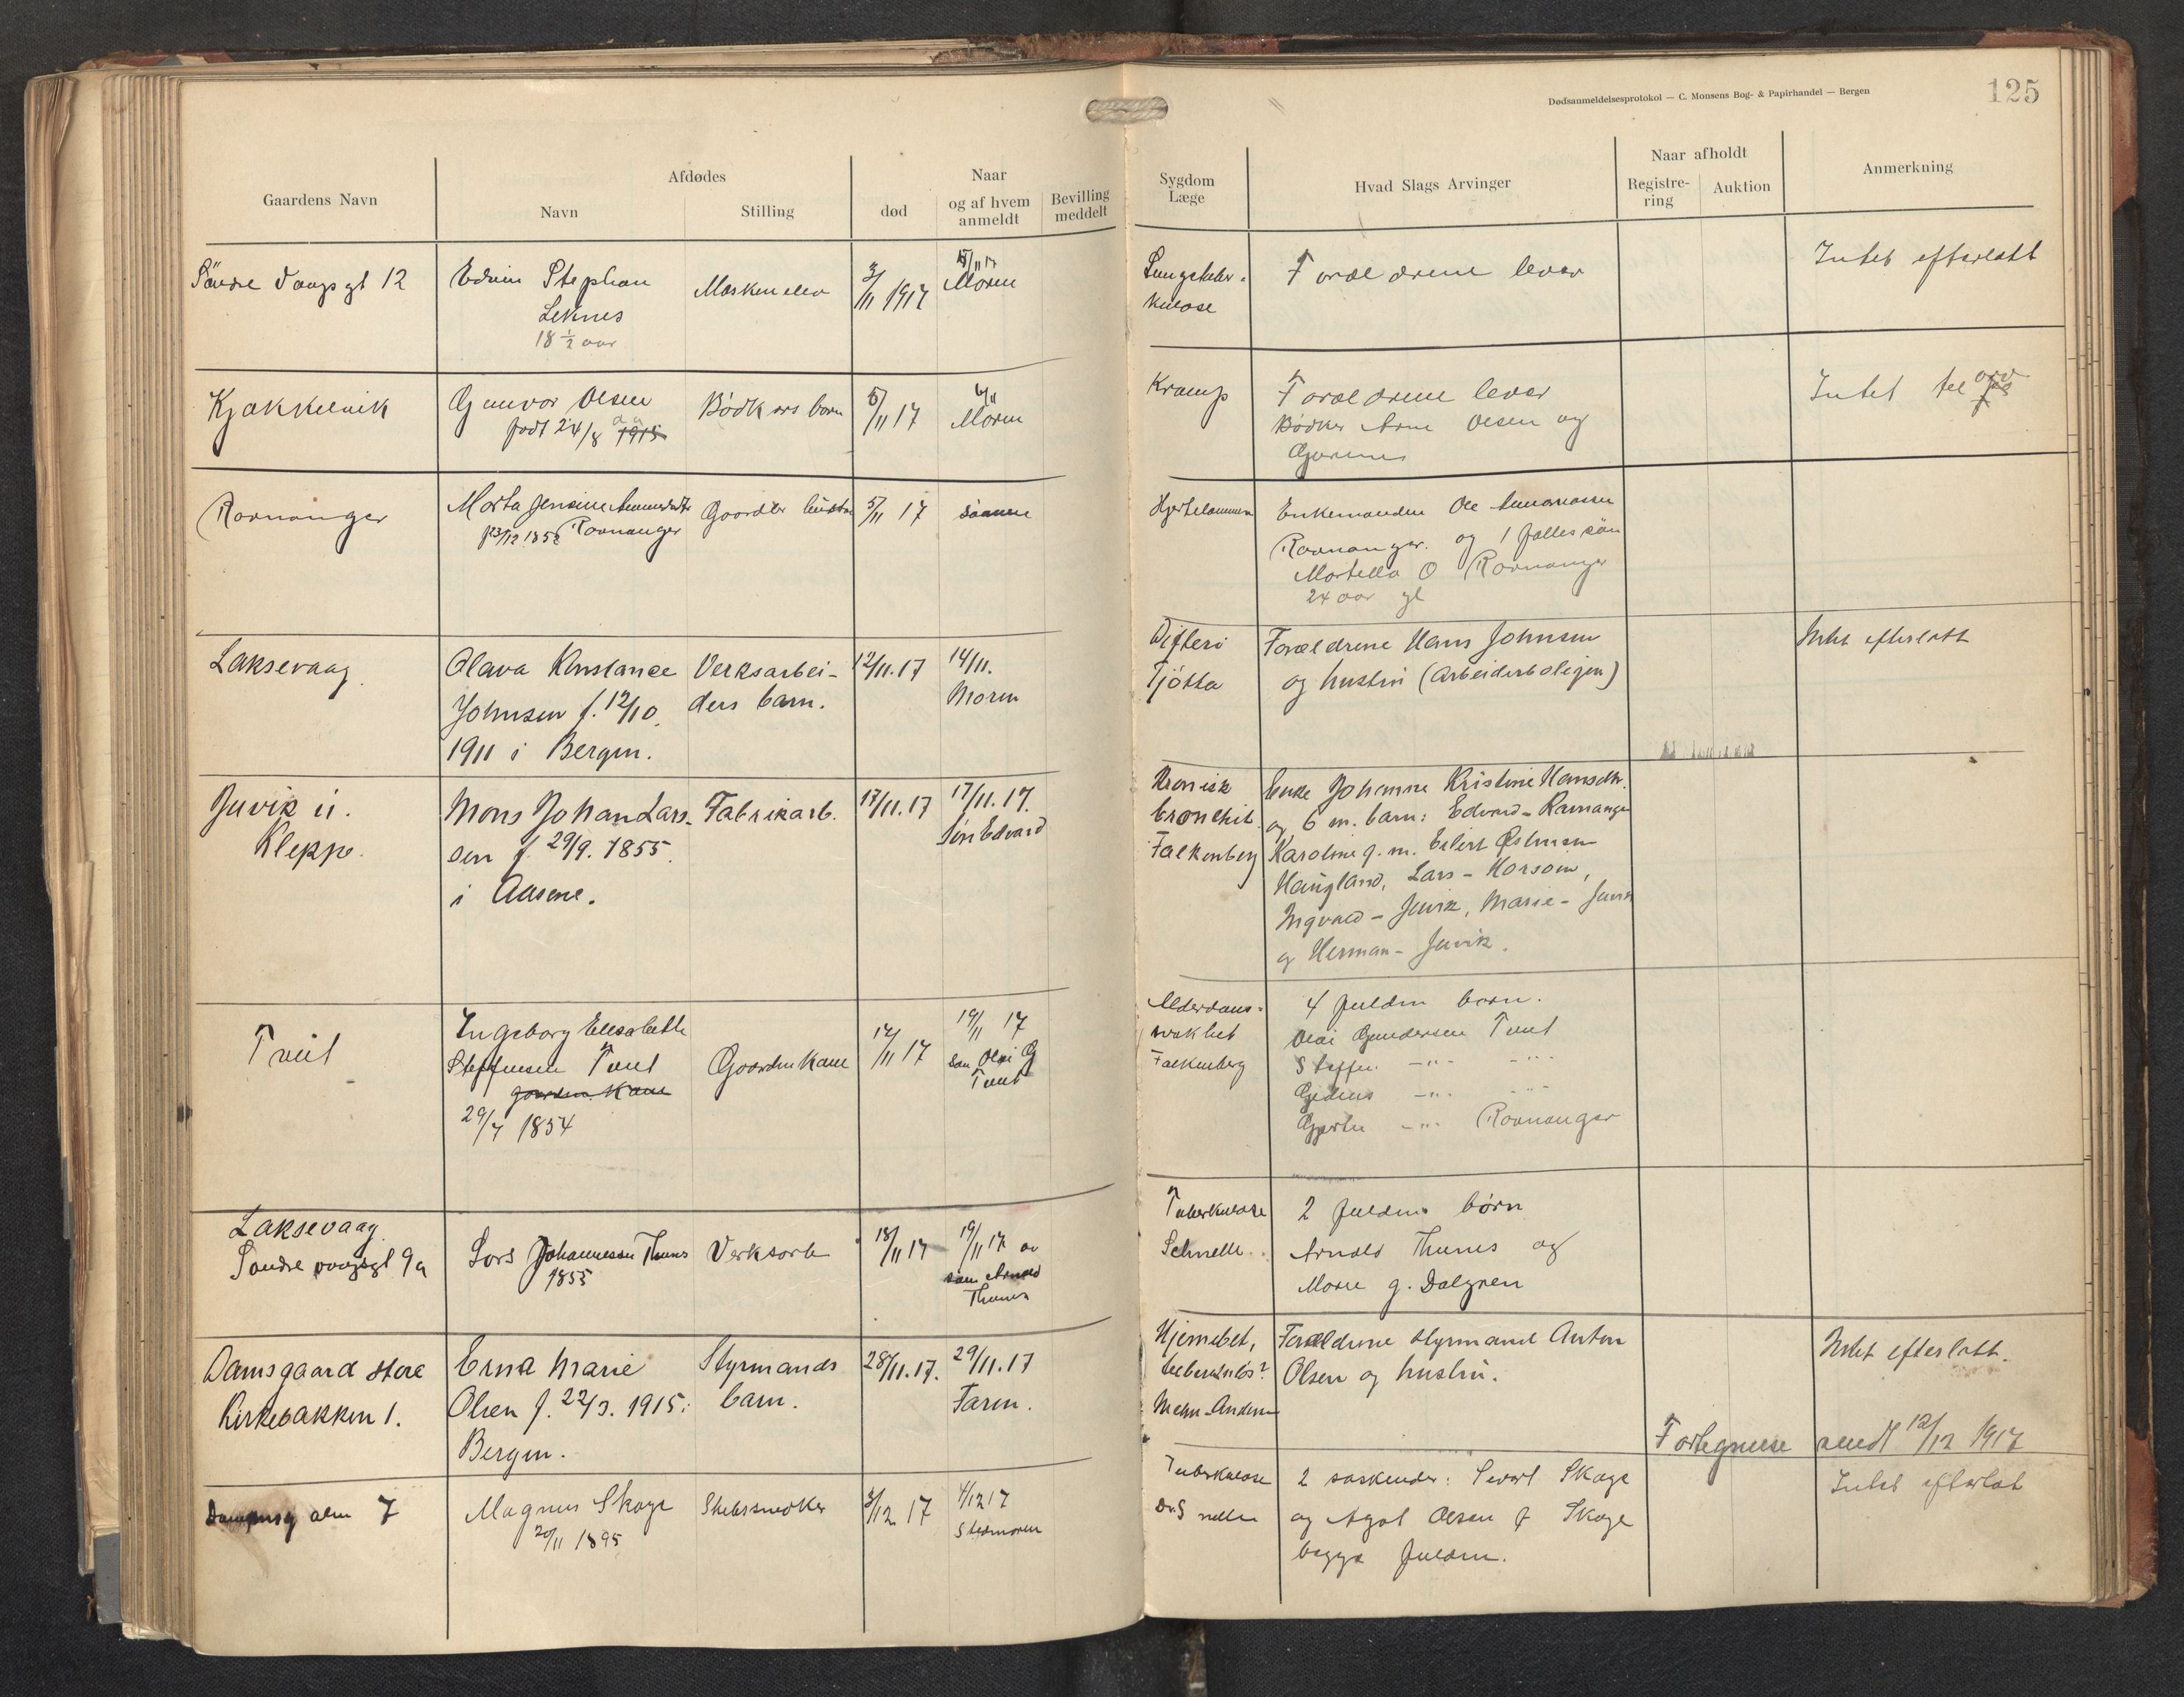 Dødsanmeldelsesprotokol — C. Monsens Bog- & Papirhandel — Bergen
125
Gaardens Navn
Afdødes
Navn
Stilling
død
Naar
og af hvem
anmeldt
Bevilling
meddelt
Sygdom
Læge
Hvad Slags Arvinger
Naar afholdt
Registre-
ring
Auktion
Anmerkning
Söndre Vaagsgt 12
Edvin Stephan
Leknes
18 ½ aar
Maskinelev
3/11 1917
5/11 17
Moren
Lungetuber-
kulose
Foræeldrene lever
Intet efterlatt
Kjøkkelvik
Gunvor Olsen
født 24/8 1915
Bødkers barn
5/11 17
6/11
Moren
Kramp
Forældrene lever
Bødker Arne Olsen og
Intet
Ramnanger
Marta Jensine
23/12 1852 Ramnanger
Gaardbr hustru
5/11 17
sønnen
Hjertelammelse
Enkemanden Ole
Ramnanger og 1 fælles sön
O Ramnanger
24 aar gl
Laksevaag
Olava Konstanse
Johnsen f. 12/10.
1911 i Bergen.
Verksarbei-
ders barn.
12/11.17
14/11.
Moren
Difteri
Tjötta
Forældrene Hans Johnsen
og hustru (Arbeiderboligen)
Intet efterlatt
Juvik u.
Kleppe.
Mons Johan Lars-
sen f. 29/9. 1855.
i Aasene.
Fabrikarb.
17/11.17
17/11.17.
Sön Edvard
Kronisk
bronchit.
Falkenberg
Enke Johanne Kristine Hansdtr.
og 6 m. barn: Edvard - Ramnanger
Karoline g. m. Eilert Østensen
Haugland, Lars - Morsom,
Ingvald - Juvik, Marie - Juvik
og Herman - Juvik.
Tveit
Ingeborg Elisabeth
Steffensen Tveit
Gaardm Kone
29/7 1854
Gaardm Kone
17/11 17
19/11 17
søn Olai G
Tveit
Alderdoms-
svakhet
Falkenberg
4 fuldm barn.
Olai Gundersen Tveit
Steffen -"- -"-
Gidius -"- -"-
Gjertine -"- Ramnanger
Laksevaag
Søndre vaagsgt 9a
Lars Johannessen Thunes
1855
Verksarb
18/11 17
19/11 17 av
søn Arnold
Thunes
Tuberkulose
Schnelle.
2 fuldm. børn
Arnold Thunes og
Marie g. Dalgren
Damsgaard store
Kirkebakken 1.
Erna Marie
Olsen f. 22/3. 1915:
Bergen.
Styrmands
barn.
28/11.17.
29/11.17
Faren.
Hjernebet,
tuberkulös?
Mehn-Andersen
Forældrene styrmand Anton
Olsen og hustru.
Intet efterlatt.
Fortegnelse sendt 12/12 1917
Damsg alm 7
Magnus Skage
20/11 1895
3/12 17
4/12 17
Stedmoren
Tuberkulose
Dr. S nelle
2 søskender: Sevart Skage
og Agot Olsen f Skage
begge fuldm.
Intet efterlat